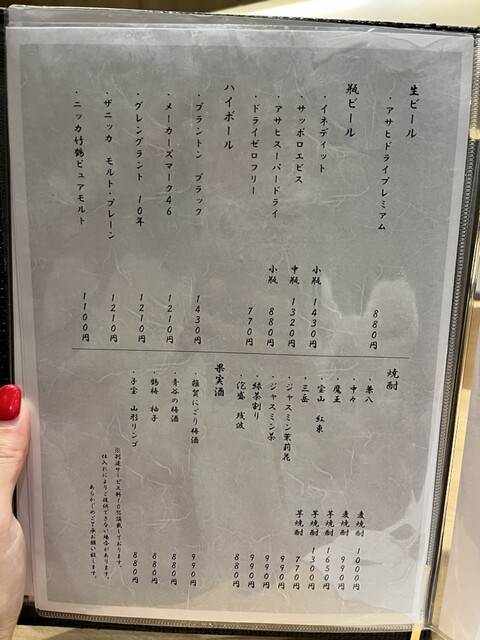 生ビール
・アサヒドライプレミアム 880円
瓶ビール
・イネディット 小瓶 1430円
・サッポロエビス 中瓶 1320円
・アサヒスーパードライ 小瓶 880円
・ドライゼロフリー 770円
ハイボール
・ブラントン ブラック 1430円
・メーカーズマーク46 1210円
・グレングラント 10年 1210円
・ザニッカ モルト・プレーン 1210円
・ニッカ竹鶴ピュアモルト 1100円
焼酎
・兼八 麦焼酎 1000円
・中々 麦焼酎 990円
・魔王 芋焼酎 1650円
・宝山 紅東 芋焼酎 1300円
・三岳 芋焼酎 770円
・ジャスミン茉莉花 990円
・ジャスミン茶 990円
・緑茶割り 990円
・泡盛 残波 880円
果実酒
・雑賀にごり梅酒 990円
・青谷の梅酒 880円
・鶴梅 柚子 880円
・子宝 山形リンゴ 880円
※別途サービス料10%頂戴しております。
仕入れによりご提供できない場合があります。
あらかじめご了承お願い致します。